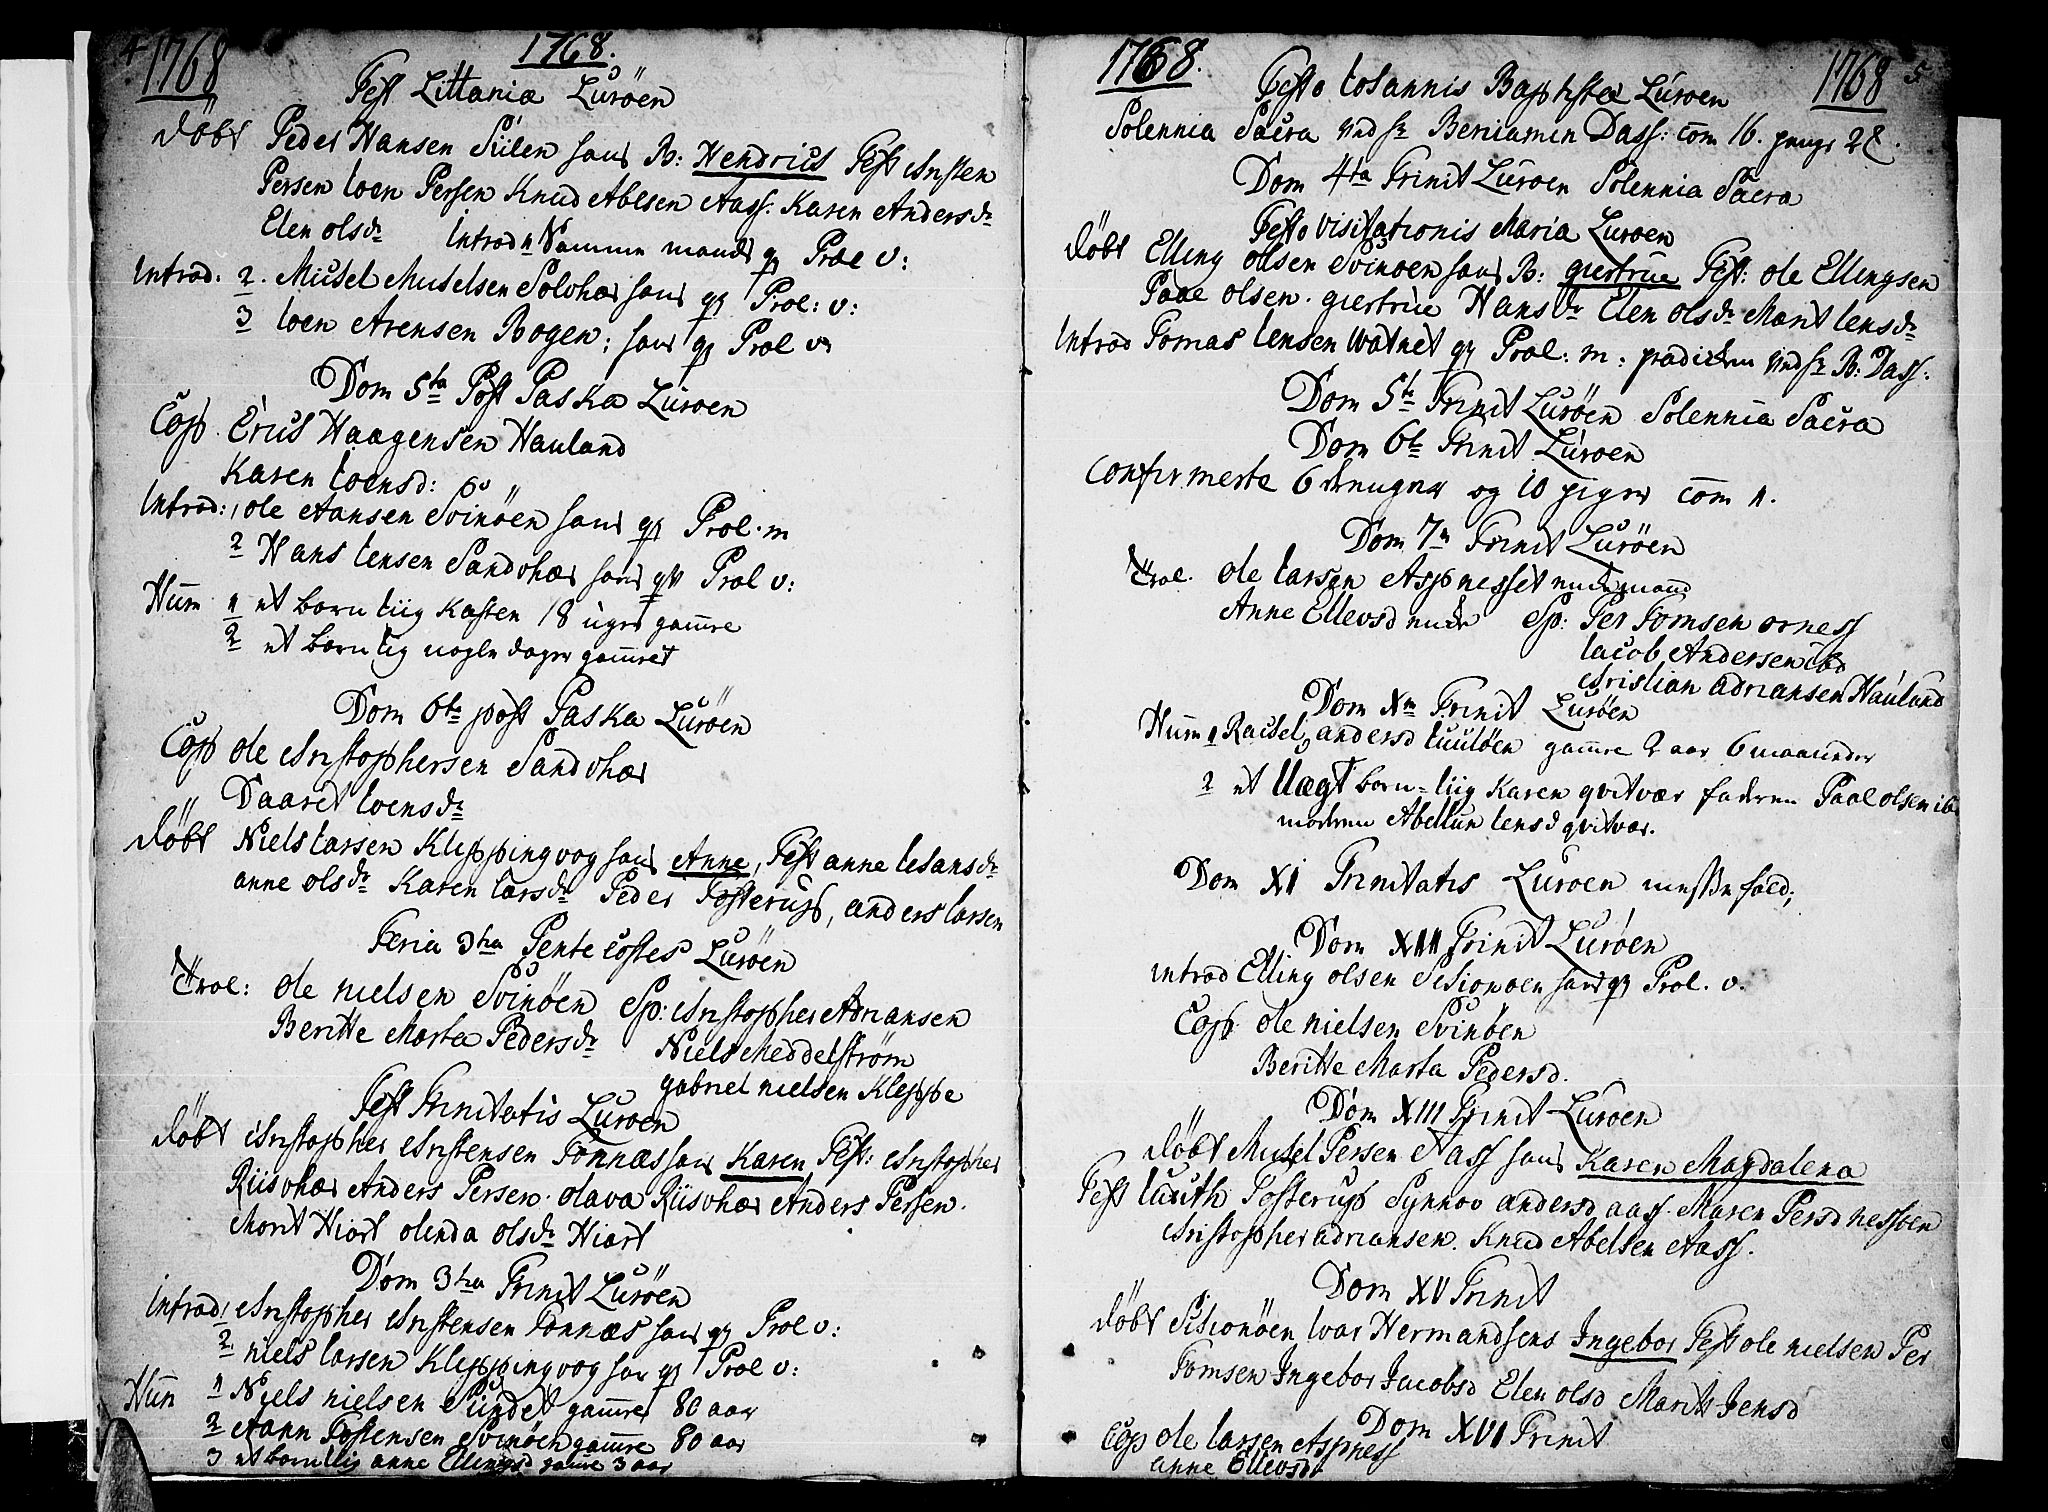 4 1768 1768.
Fest Littaniæ Lurøen
døbt Peder Hansen Siilen hans B: Hendrich Test Christen
Persen Joen Persen Knud Abelsen Aass. Karen Andersdr
Elen olsdr Introd 1 Samme mands q Præl v:
Introd: 2. Michel Michelsen Solvhær hans q Præl: v:
3 Joen Arensen Bogen: hans q Præl v
Dom 5ta Post Paska Luroen
Cop. Erich Haagensen Hauland
Karen Joensd:
Introd: 1 ole Hansen Svinöen hans q Præl. m
2 Hans Jensen Sandvhær hans q Præl v:
Hum 1 et barn liig Kasten 18 uger gammel
2 et barn lig nogle dager gammelt
Dom 6te post Paska Luröen
Cop ole Christophersen Sandvhær
Daaret Joensdr
døbt Niels Larsen Kleppingvog hans Anne, Test anne Johansdr
anne olsdr Karen Larsdr Peder Tosterup, anders Larsen
Feria 3tia Pentecostes Luröen
Trol: ole nielsen Svinöen Sp: Christopher Adriansen
Beritte Marta Pedersdr Niels Meddelström
gabriel nielsen Kleppe
Fest Trinitatis Luroen
døbt Christopher Christensen Tonnæs hans Karen Test: Christopher
Riisvhær Anders Persen. olava Riisvhær Anders Persen.
Marit Hiort olinda olsdr Hiort
Dom 3tia Trinit Luröen
Introd: 1 Christopher Christensen Tonnæs hans q Præl v:
2 niels Larsen Kleppingvog han q Præl v:
Hum 1 Niels nielsen Sundet gammel 80 aar
2 Aann Tostensen Svinöen gammel 80 aar
3 et barn lig anne Ellingsd gamle 3 aar
1768. 1768 5
Festo Johannis Baptistæ Luroen
Solennia Sacra ved Hr Beniamin Dass: Com 16. penge 28.
Dom 4ta Trinit Luroen Solennia Sacra
Festo visitationis Maria Luroen
døbt Elling olsen Svinoen hans B: giertrue Test: ole Ellingsen
Paal olsen. giertrue Hansdr Elen olsdr Marit Jensdr
Introd Tomas Jensen Watnet q Præl: m: prædicken ved Hr B: Dass:
Dom 5te Trinit Luröen Solennia Sacra
Dom 6te Trinit Luroen
Confirmerte 6 drenger og 10 piger Com 1.
Dom 7m Trinit Luröen
Trol. ole Larsen Aspnesset enckemand
Anne Ellevsd encke Sp: Per Tomsen orness
Jacob Andersen ibd
Christian Adriansen Hauland
Dom Xm Trinit Luröen
Hum 1 Rachel andersd Luulöen gamle 2 aar 6 maaneder
2 et Uægt barn-liig Karen qvitvær faderen Paal olsen ib
moderen Abellun Jensd qvitvær.
Dom XI Trinitatis Luroen messefald;
Dom XII Trinit Luröen
introd Elling olsen Schionoen hans q Præl. v.
Cop. ole nielsen Svinöen
Beritte Marta Pedersd.
Dom XIII Trinit Luroen
døbt Michel Persen Aass hans Karen Magdalena
Test Luuth Tosterup Synnov andersd aass. Maren Persd nessöen
Christopher adriansen. Knud Abelsen Aass.
Dom XV Trinit
døbt Schionöen Ivar Hermandsens Ingebor Test ole nielsen Per
Tomsen Ingebor Jacobsd Elen olsd Marith Jensd
Dom XVI Trinit
Cop ole Larsen Aspness
anne Ellevsdr